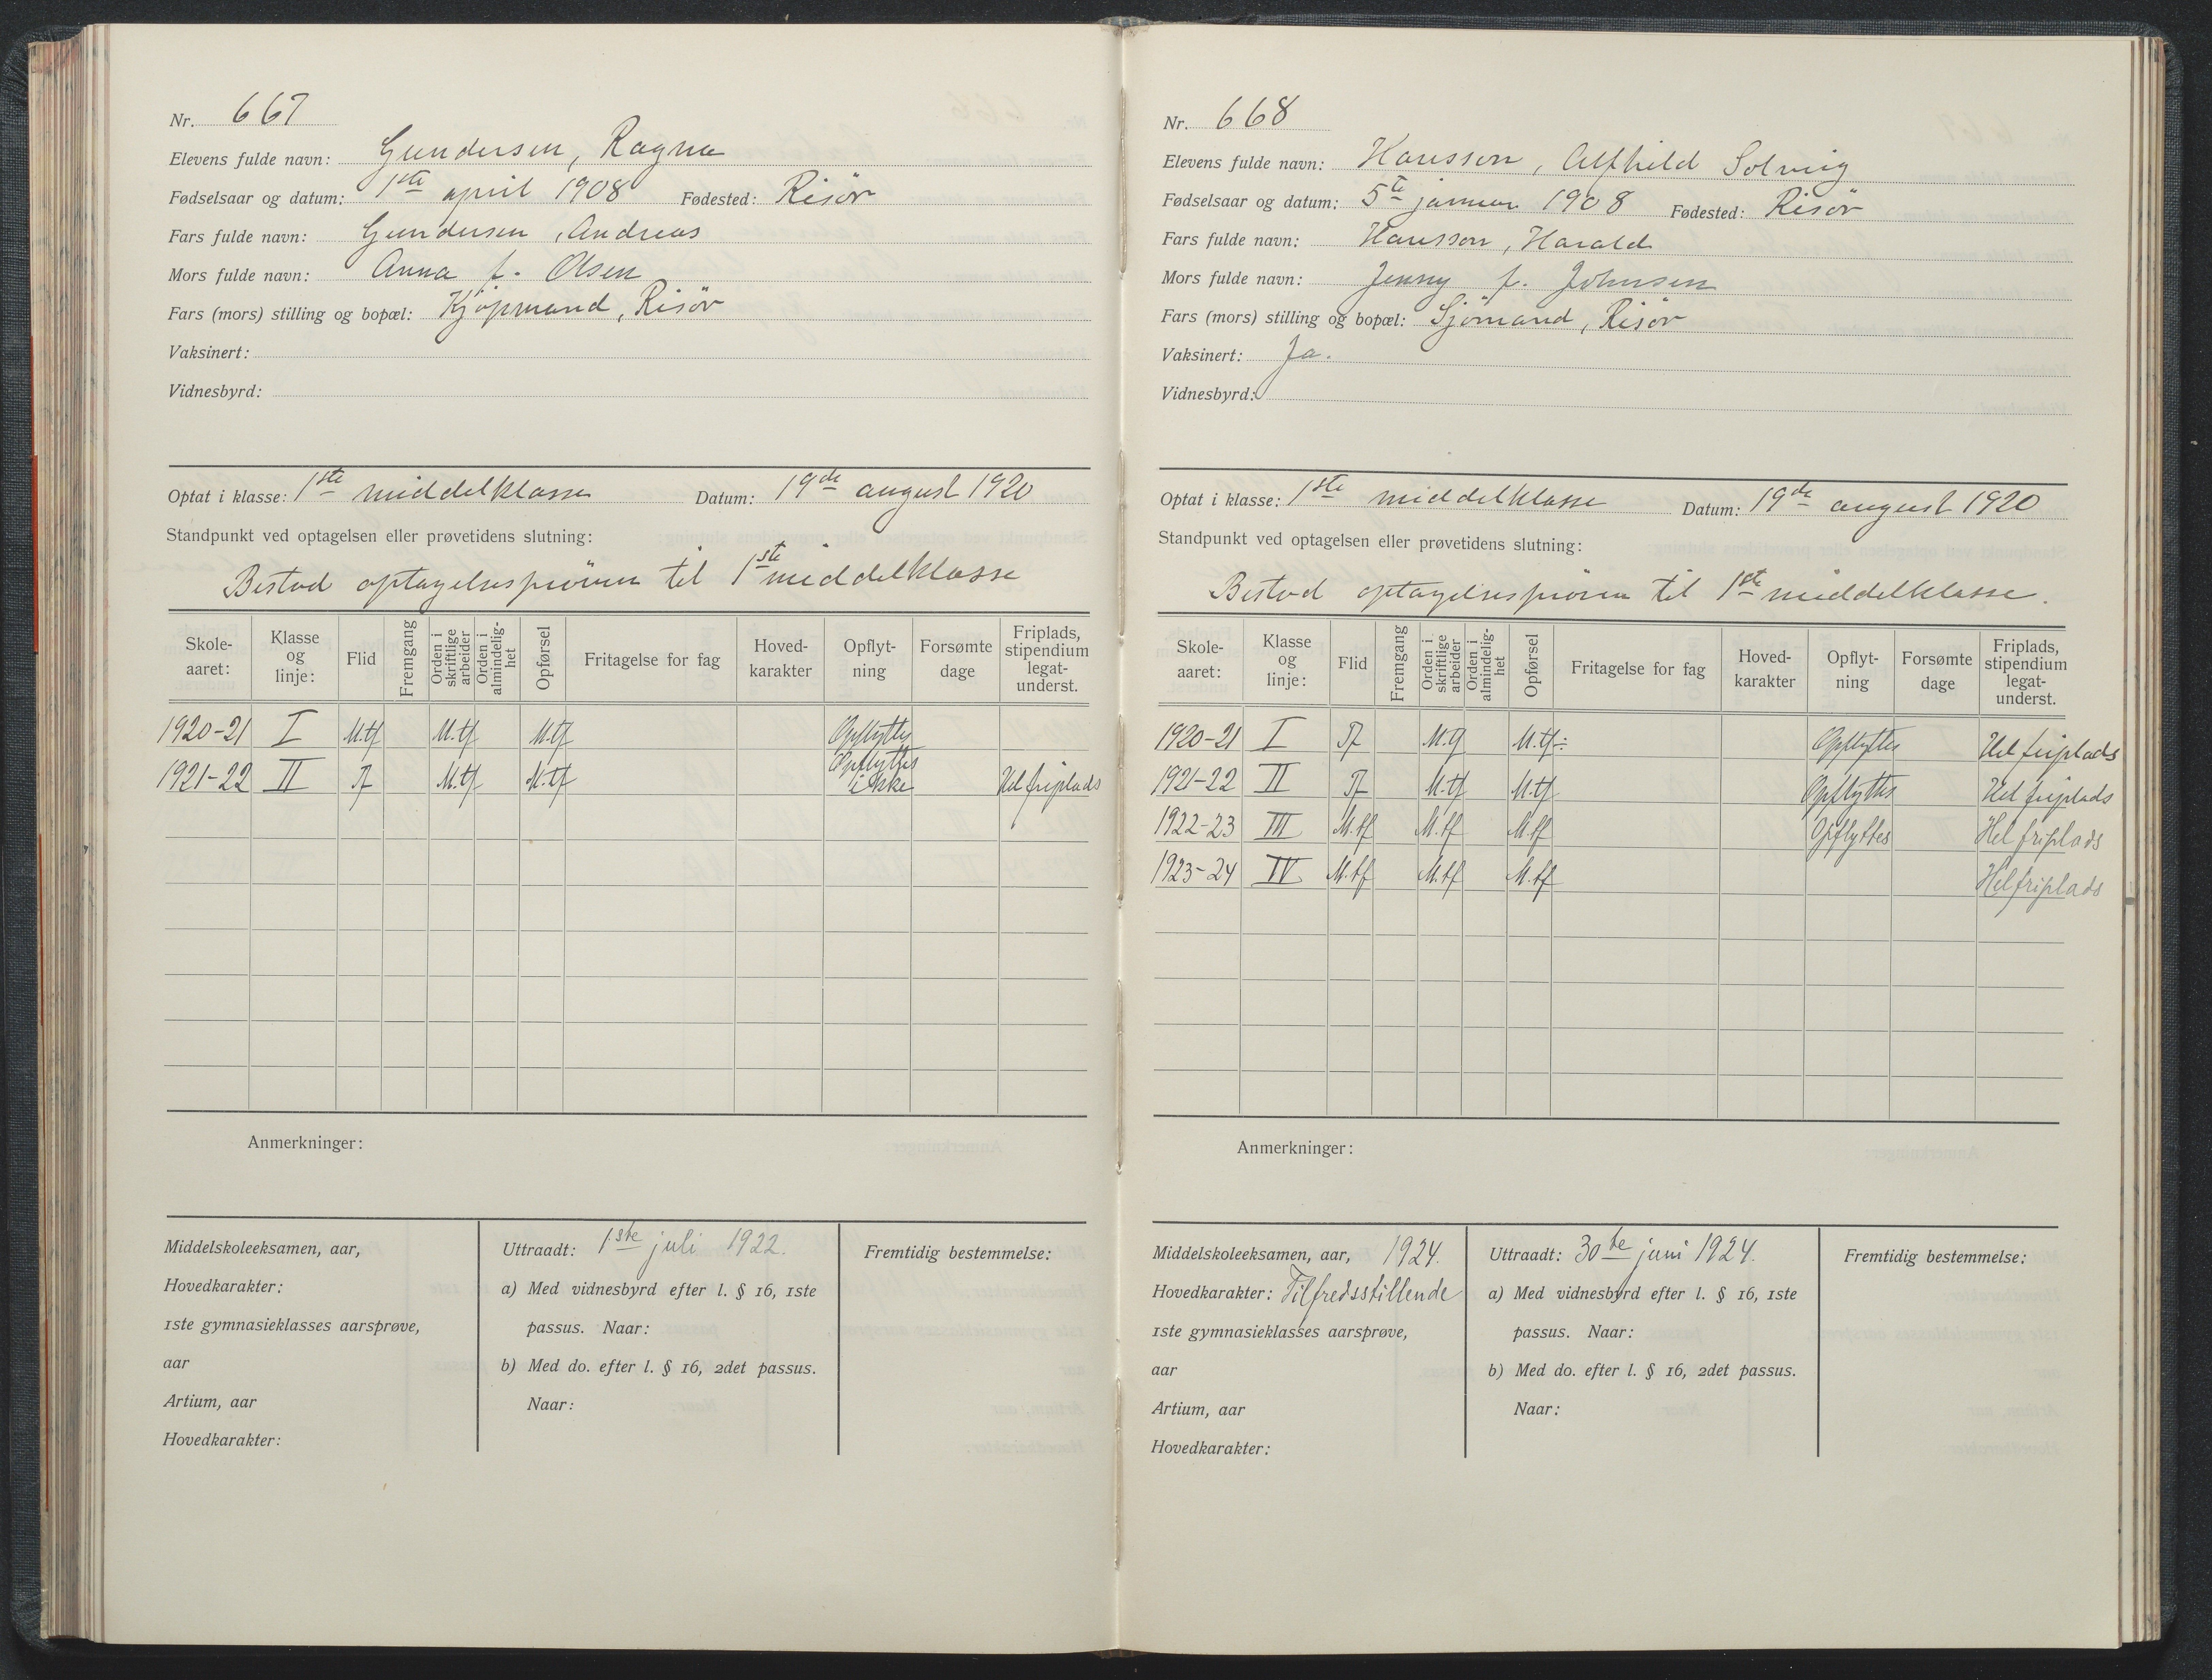 Nr. 667
Elevens fulde navn: Gundersen, Ragna
Fødselsaar og datum: 1ste april 1908 Fødested: Risör
Fars fulde navn: Gundersen, Andreas
Mors fulde navn: Anna f. Olsen
Fars (mors) stilling og bopæl: Kjöpmand, Risör
Vaksinert:
Vidnesbyrd:
Optat i klasse: 1ste middelklasse Datum: 19de august 1920
Standpunkt ved optagelsen eller prøvetidens slutning:
Bestod optagelsespröven til 1ste middelklasse
Skole-aaret: Klasse og linje: Flid Fremgang Orden i skriftlige arbeider Orden i almindelig-het Opførsel Fritagelse for fag Hoved-karakter Opflyt-ning Forsømte dage Friplads, stipendium legat-underst.
1920-21 I M.tf M.tf M.tf Opflyttes
1921-22 II Tf M.tf M.tf Opflyttes ikke Hel friplads
Anmerkninger:
Middelskoleeksamen, aar,
Hovedkarakter:
1ste gymnasieklasses aarsprøve,
aar
Artium, aar
Hovedkarakter:
Uttraadt: 1ste juli 1922.
a) Med vidnesbyrd efter l. § 16, 1ste
passus. Naar:
b) Med do. efter l. § 16, 2det passus.
Naar:
Fremtidig bestemmelse:
Nr. 668
Elevens fulde navn: Hansson, Alfhild Solveig
Fødselsaar og datum: 5te januar 1908 Fødested: Risör
Fars fulde navn: Hansson, Harald
Mors fulde navn: Jenny f. Johnsen
Fars (mors) stilling og bopæl: Sjömand, Risör
Vaksinert: Ja.
Vidnesbyrd:
Optat i klasse: 1ste middelklasse Datum: 19de august 1920
Standpunkt ved optagelsen eller prøvetidens slutning:
Bestod optagelsespröven til 1ste middelklasse.
Skole-aaret: Klasse og linje: Flid Fremgang Orden i skriftlige arbeider Orden i almindelig-het Opførsel Fritagelse for fag Hoved-karakter Opflyt-ning Forsømte dage Friplads, stipendium legat-underst.
1920-21 I Tf M.tf M.tf÷ Opflyttes Hel friplads
1921-22 II Tf M.tf M.tf Opflyttes Hel friplads
1922-23 III M.tf M.tf M.tf Opflyttes Hel friplads
1923-24 IV M.tf M.tf M.tf Hel friplads
Anmerkninger:
Middelskoleeksamen, aar, 1924.
Hovedkarakter: Tilfredsstillende
1ste gymnasieklasses aarsprøve,
aar
Artium, aar
Hovedkarakter:
Uttraadt: 30te juni 1924.
a) Med vidnesbyrd efter l. § 16, 1ste
passus. Naar:
b) Med do. efter l. § 16, 2det passus.
Naar:
Fremtidig bestemmelse: